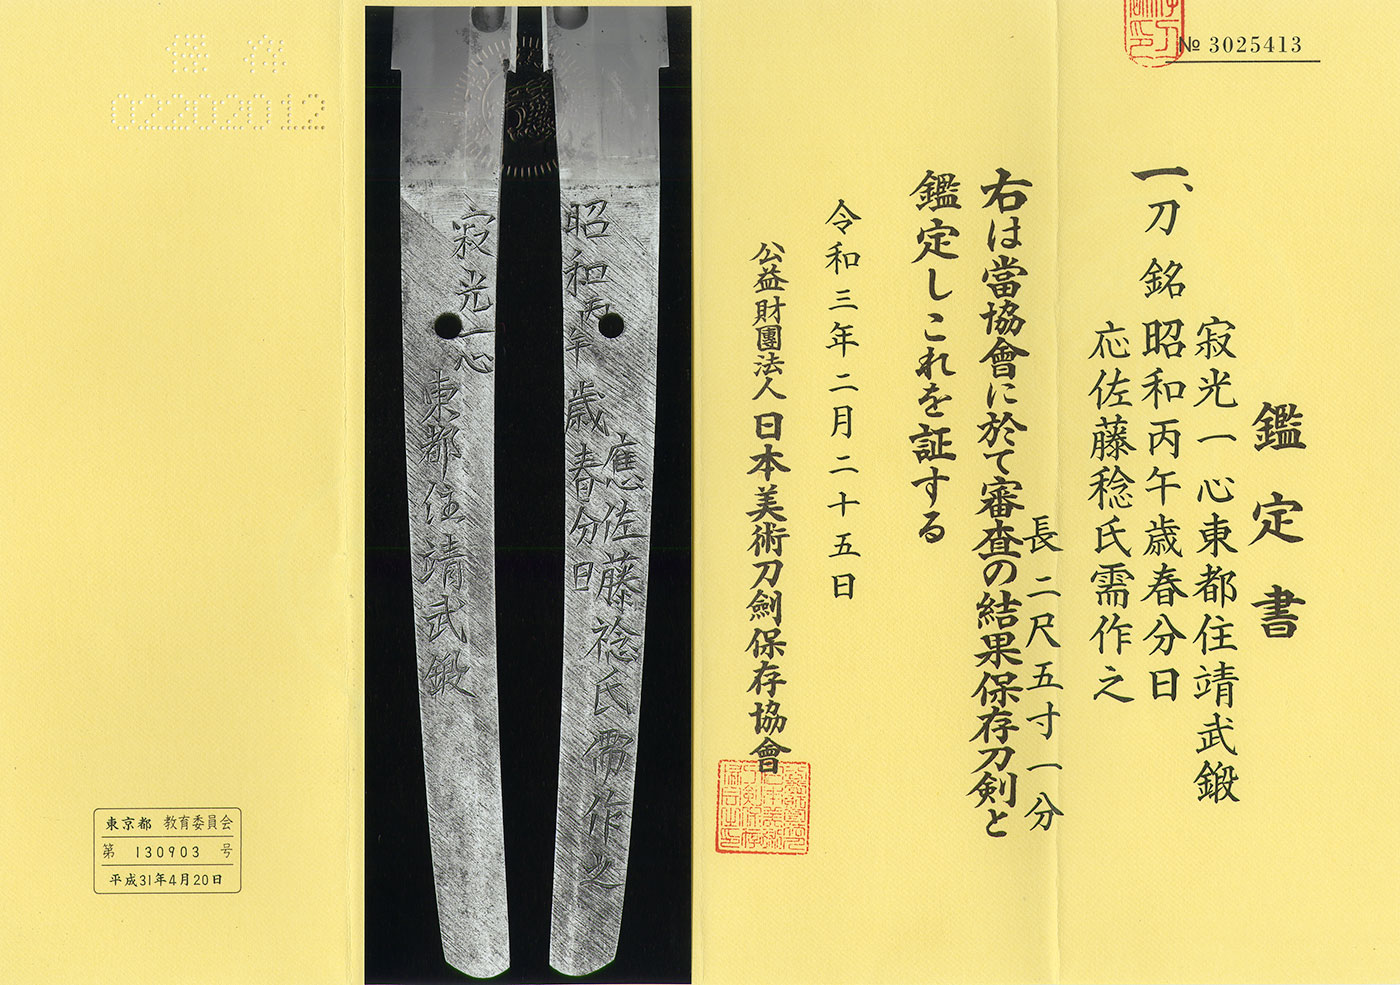 № 3025413
鑑定書
一、刀 銘 寂光一心東都住靖武鍛
昭和丙午歳春分日
応佐藤稔氏需作之
長 二尺五寸一分
右は當協會に於て審査の結果保存刀剣と
鑑定しこれを証する
令和三年二月二十五日
公益財團法人 日本美術刀劍保存協會
昭和丙午歳春分日
應佐藤稔氏需作之
寂光一心
東都住靖武鍛
保存
02202012
東京都 教育委員会
第 130903 号
平成31年4月20日